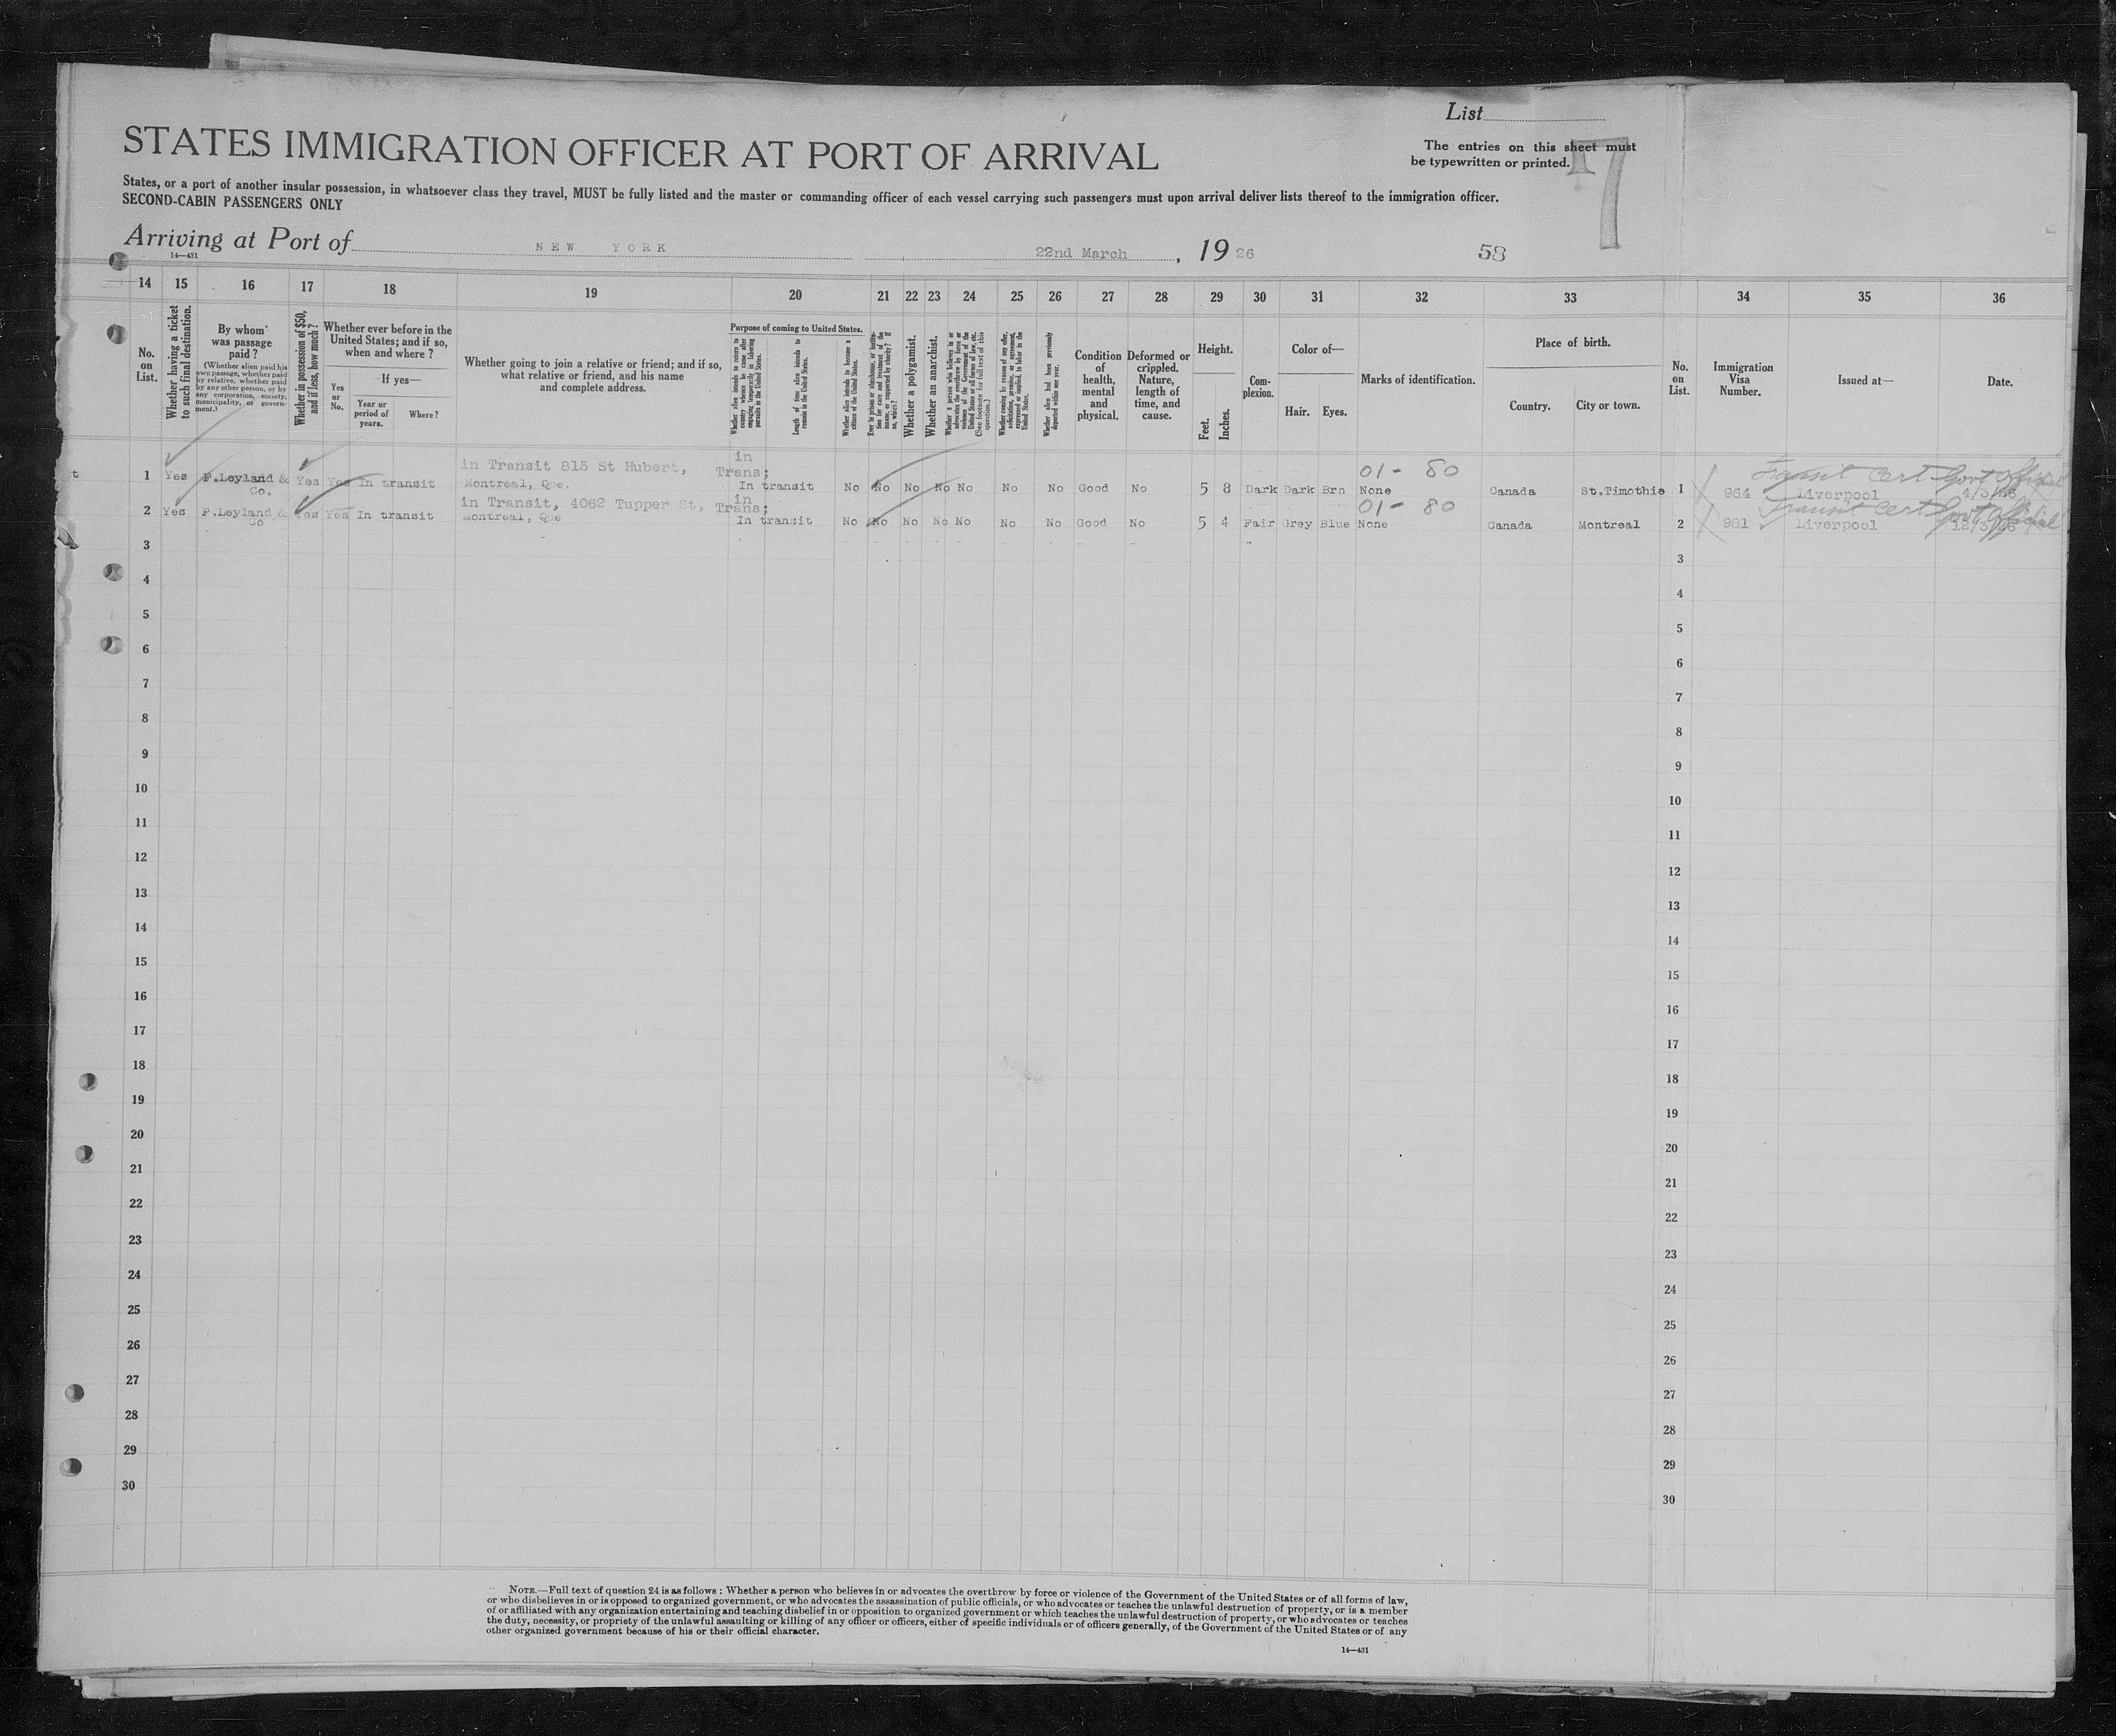 List
STATES IMMIGRATION OFFICER AT PORT OF ARRIVAL
The entries on this sheet must
be typewritten or printed.
17
States, or a port of another insular possession, in whatsoever class they travel, MUST be fully listed and the master or commanding officer of each vessel carrying such passengers must upon arrival deliver lists thereof to the immigration officer.
SECOND-CABIN PASSENGERS ONLY
Arriving at Port of NEW YORK 22nd March, 1926 58
14—431
14 15 16 17 18 19 20 21 22 23 24 25 26 27 28 29 30 31 32 33 34 35 36
No. on List.
Whether having a ticket to such final destination.
By whom was passage paid?
(Whether alien paid his own passage, whether paid by relative, whether paid by any other person, or by any corporation, society, municipality, or government.)
Whether in possession of $50, and if less, how much?
Whether ever before in the United States; and if so, when and where?
Yes or No.
If yes—
Year or period of years.
Where?
Whether going to join a relative or friend; and if so, what relative or friend, and his name and complete address.
Purpose of coming to United States.
Whether alien intends to return to country whence he came after engaging temporarily in laboring pursuits in the United States.
Length of time alien intends to remain in the United States.
Whether alien intends to become a citizen of the United States.
Ever in prison or almshouse, or institution for care and treatment of the insane, or supported by charity? If so, which?
Whether a polygamist.
Whether an anarchist.
Whether a person who believes in or advocates the overthrow by force or violence of the Government of the United States or all forms of law, etc. (See footnote for full text of this question.)
Whether coming by reason of any offer, solicitation, promise, or agreement, expressed or implied, to labor in the United States.
Whether alien had been previously deported within one year.
Condition of health, mental and physical.
Deformed or crippled. Nature, length of time, and cause.
Height.
Feet.
Inches.
Complexion.
Color of—
Hair. Eyes.
Marks of identification.
Place of birth.
Country. City or town.
No. on List.
Immigration Visa Number.
Issued at—
Date.
t 1 Yes F.Leyland & Co. Yes Yes In transit in Transit 815 St Hubert, Montreal, Que. in Trans; In transit No No No No No No No Good No 5 8 Dark Dark Brn 01- 80 None Canada St.Timothie 1 964 Transit Cert Govt Official Liverpool 4/3/26
2 Yes F.Leyland & Co Yes Yes In transit in Transit, 4062 Tupper St, Montreal, Que in Trans; In transit No No No No No No No Good No 5 4 Fair Grey Blue 01- 80 None Canada Montreal 2 981 Transit Cert Govt Official Liverpool 12/3/26
3 3
4 4
5 5
6 6
7 7
8 8
9 9
10 10
11 11
12 12
13 13
14 14
15 15
16 16
17 17
18 18
19 19
20 20
21 21
22 22
23 23
24 24
25 25
26 26
27 27
28 28
29 29
30 30
NOTE.—Full text of question 24 is as follows: Whether a person who believes in or advocates the overthrow by force or violence of the Government of the United States or of all forms of law,
or who disbelieves in or is opposed to organized government, or who advocates the assassination of public officials, or who advocates or teaches the unlawful destruction of property, or is a member
of or affiliated with any organization entertaining and teaching disbelief in or opposition to organized government or which teaches the unlawful destruction of property, or who advocates or teaches
the duty, necessity, or propriety of the unlawful assaulting or killing of any officer or officers, either of specific individuals or of officers generally, of the Government of the United States or of any
other organized government because of his or their official character.
14—431